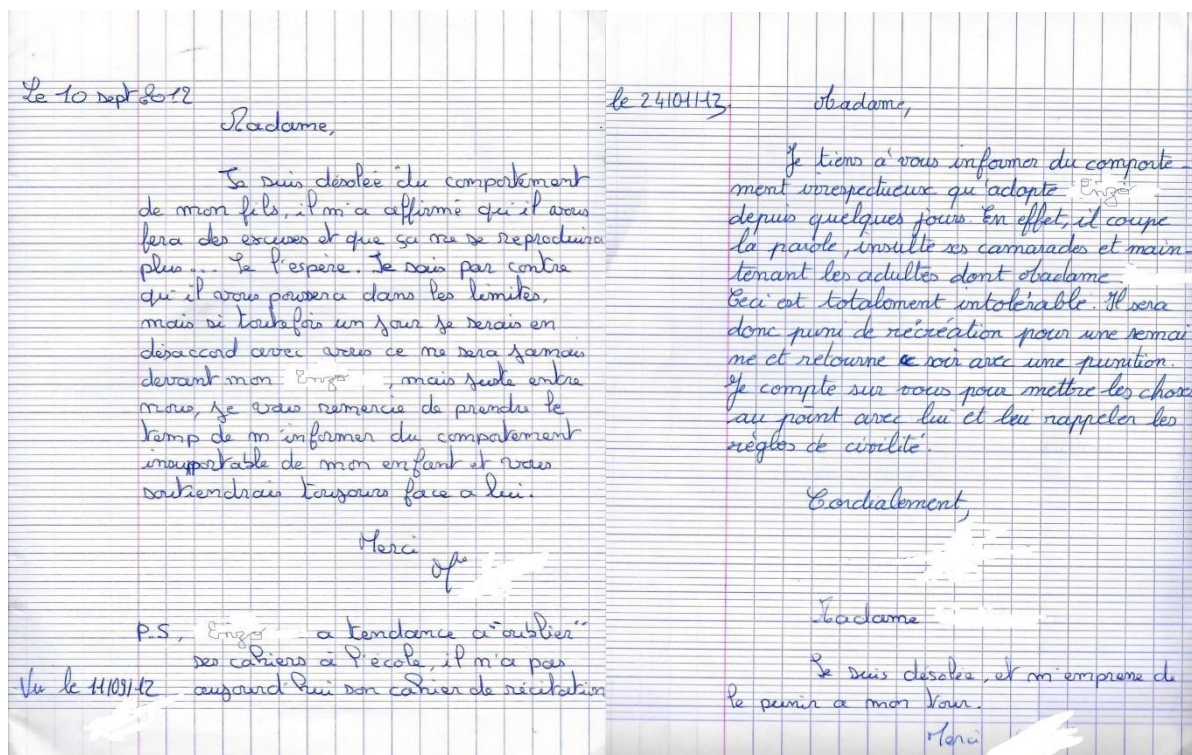 Le 10 sept 2012
Madame,
Je suis désolée du comportement
de mon fils, il m'a affirmé qu'il vous
fera des excuses et que ça ne se reproduira
plus... Je l'espère. Je sais par contre
qu'il vous poussera dans les limites,
mais si toutefois un jour je serais en
désaccord avec vous ce ne sera jamais
devant mon Enzo, mais juste entre
nous, je vous remercie de prendre le
temp de m'informer du comportement
insupportable de mon enfant et vous
soutiendrais toujours face a lui.
Merci
Mme
P.S, Enzo a tendance à "oublier"
ses cahiers à l'école, il n'a pas
Vu le 11/09/12 aujourd'hui son cahier de récitation
le 24/01/13. Madame,
Je tiens à vous informer du comporte-
ment irrespectueux qu'adopte Enzo
depuis quelques jours. En effet, il coupe
la parole, insulte ses camarades et main-
tenant les adultes dont Madame
Ceci est totalement intolérable. Il sera
donc puni de récréation pour une semai
ne et retourne ce soir avec une punition.
Je compte sur vous pour mettre les choses
au point avec lui et lui rappeler les
règles de civilité.
Cordialement,
Madame
Je suis désolée, et m'emprene de
le punir a mon tour.
Merci